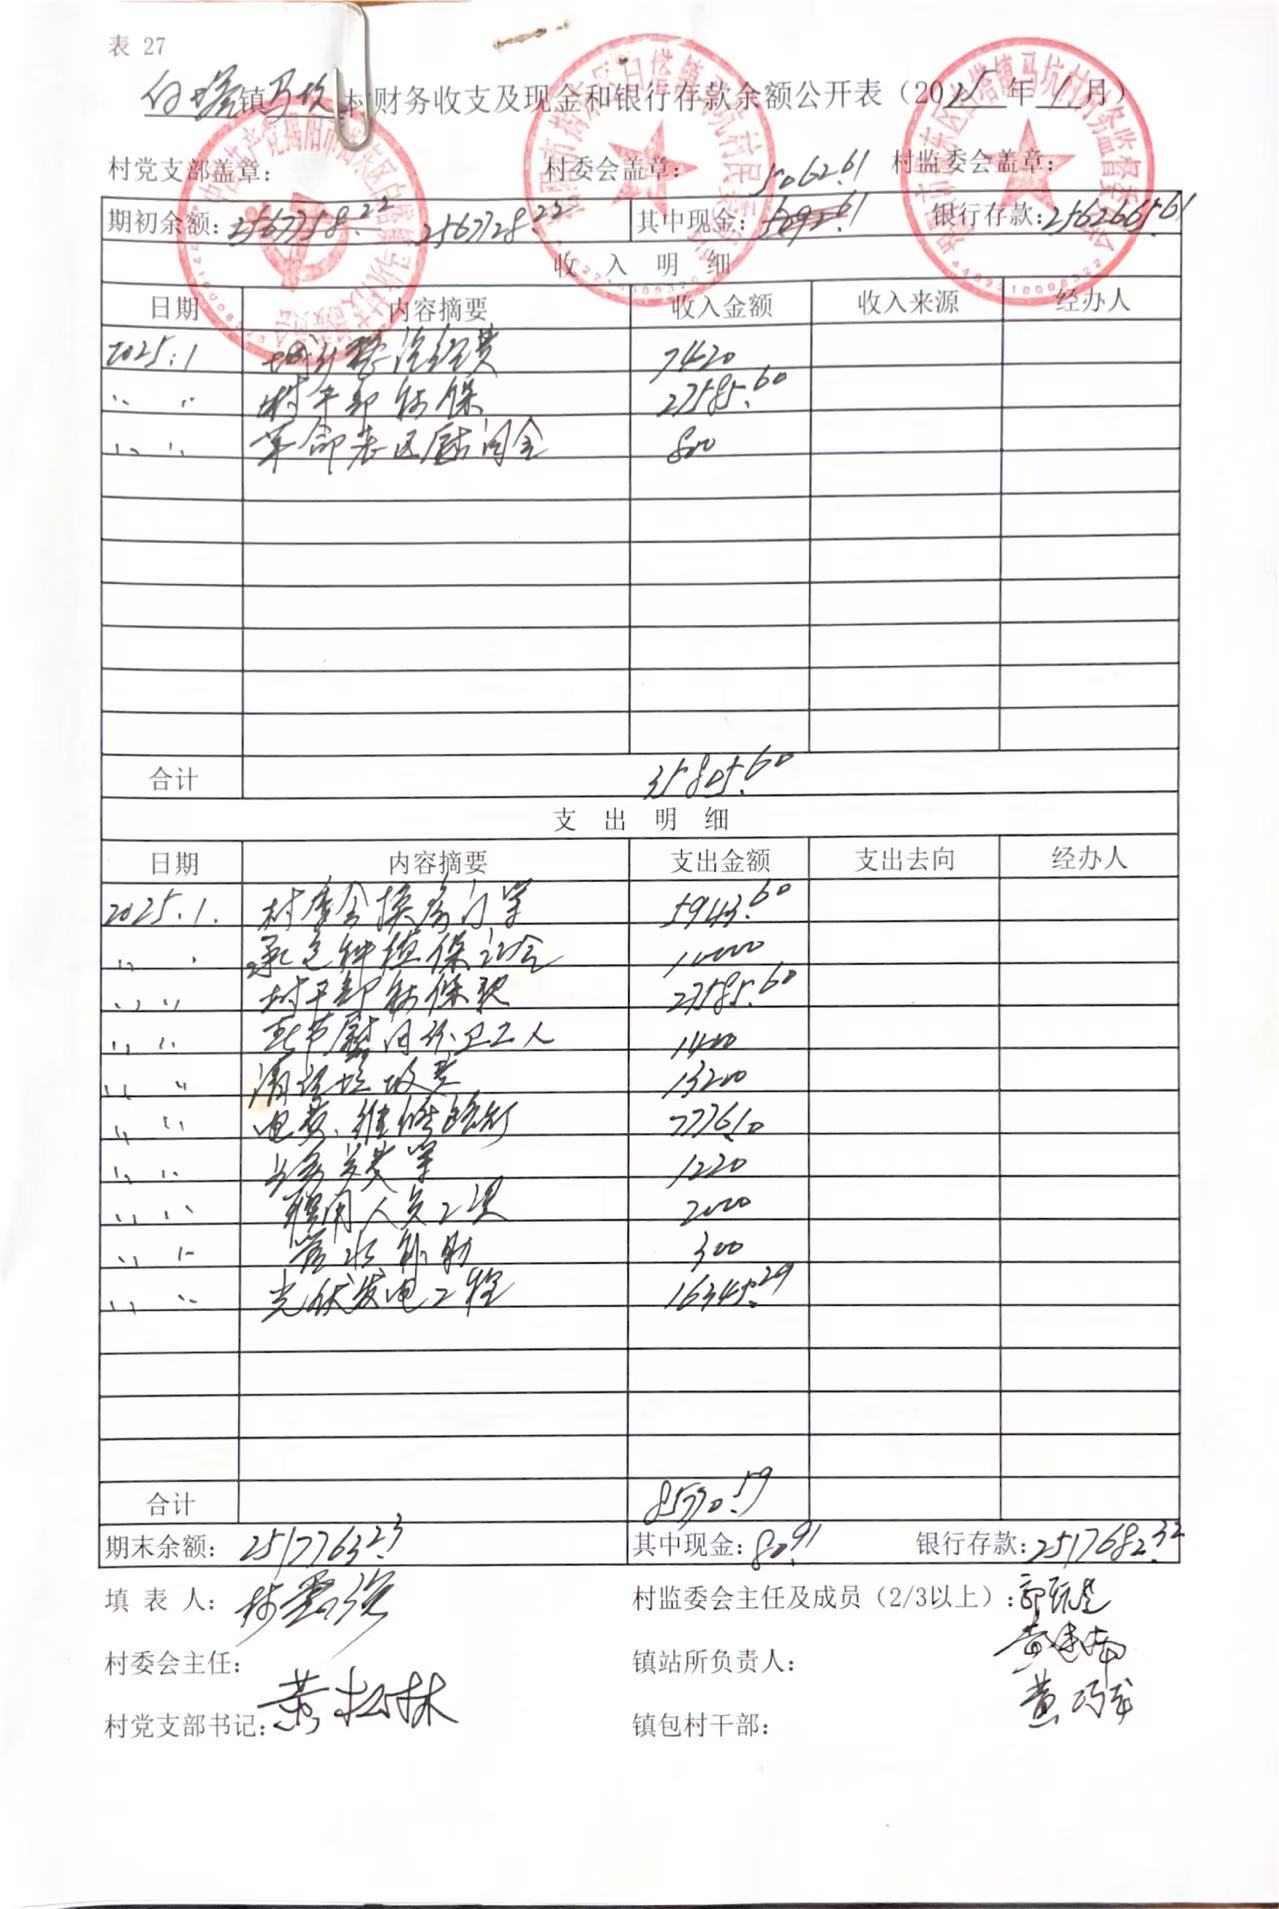 表 27
白塔镇马坑村财务收支及现金和银行存款余额公开表（2025年1月）
村党支部盖章： 村委会盖章： 村监委会盖章：
5062.61
期初余额：2567758.22 2567728.22 其中现金：5092.61 银行存款：2562665.61
收 入 明 细
日期 内容摘要 收入金额 收入来源 经办人
2025.1 7420
〃 〃 村干部社保 27585.60
〃 〃 革命老区慰问金 800
合计 35805.60
支 出 明 细
日期 内容摘要 支出金额 支出去向 经办人
2025.1. 村委会换房门等 5943.60
〃 〃 承包种植保证金 10000
〃 〃 村干部社保款 27585.60
〃 〃 春节慰问环卫工人 1400
〃 〃 清运垃圾费 13200
〃 〃 电费、维修路灯 7776.10
〃 〃 1220
〃 〃 聘用人员工资 2000
〃 〃 管水补助 300
〃 〃 光伏发电工程 16345.29
合计 85770.59
期末余额：2517763.23 其中现金：80.91 银行存款：2517682.32
填 表 人： 村监委会主任及成员（2/3以上）：
村委会主任： 镇站所负责人：
村党支部书记：黄松林 镇包村干部：